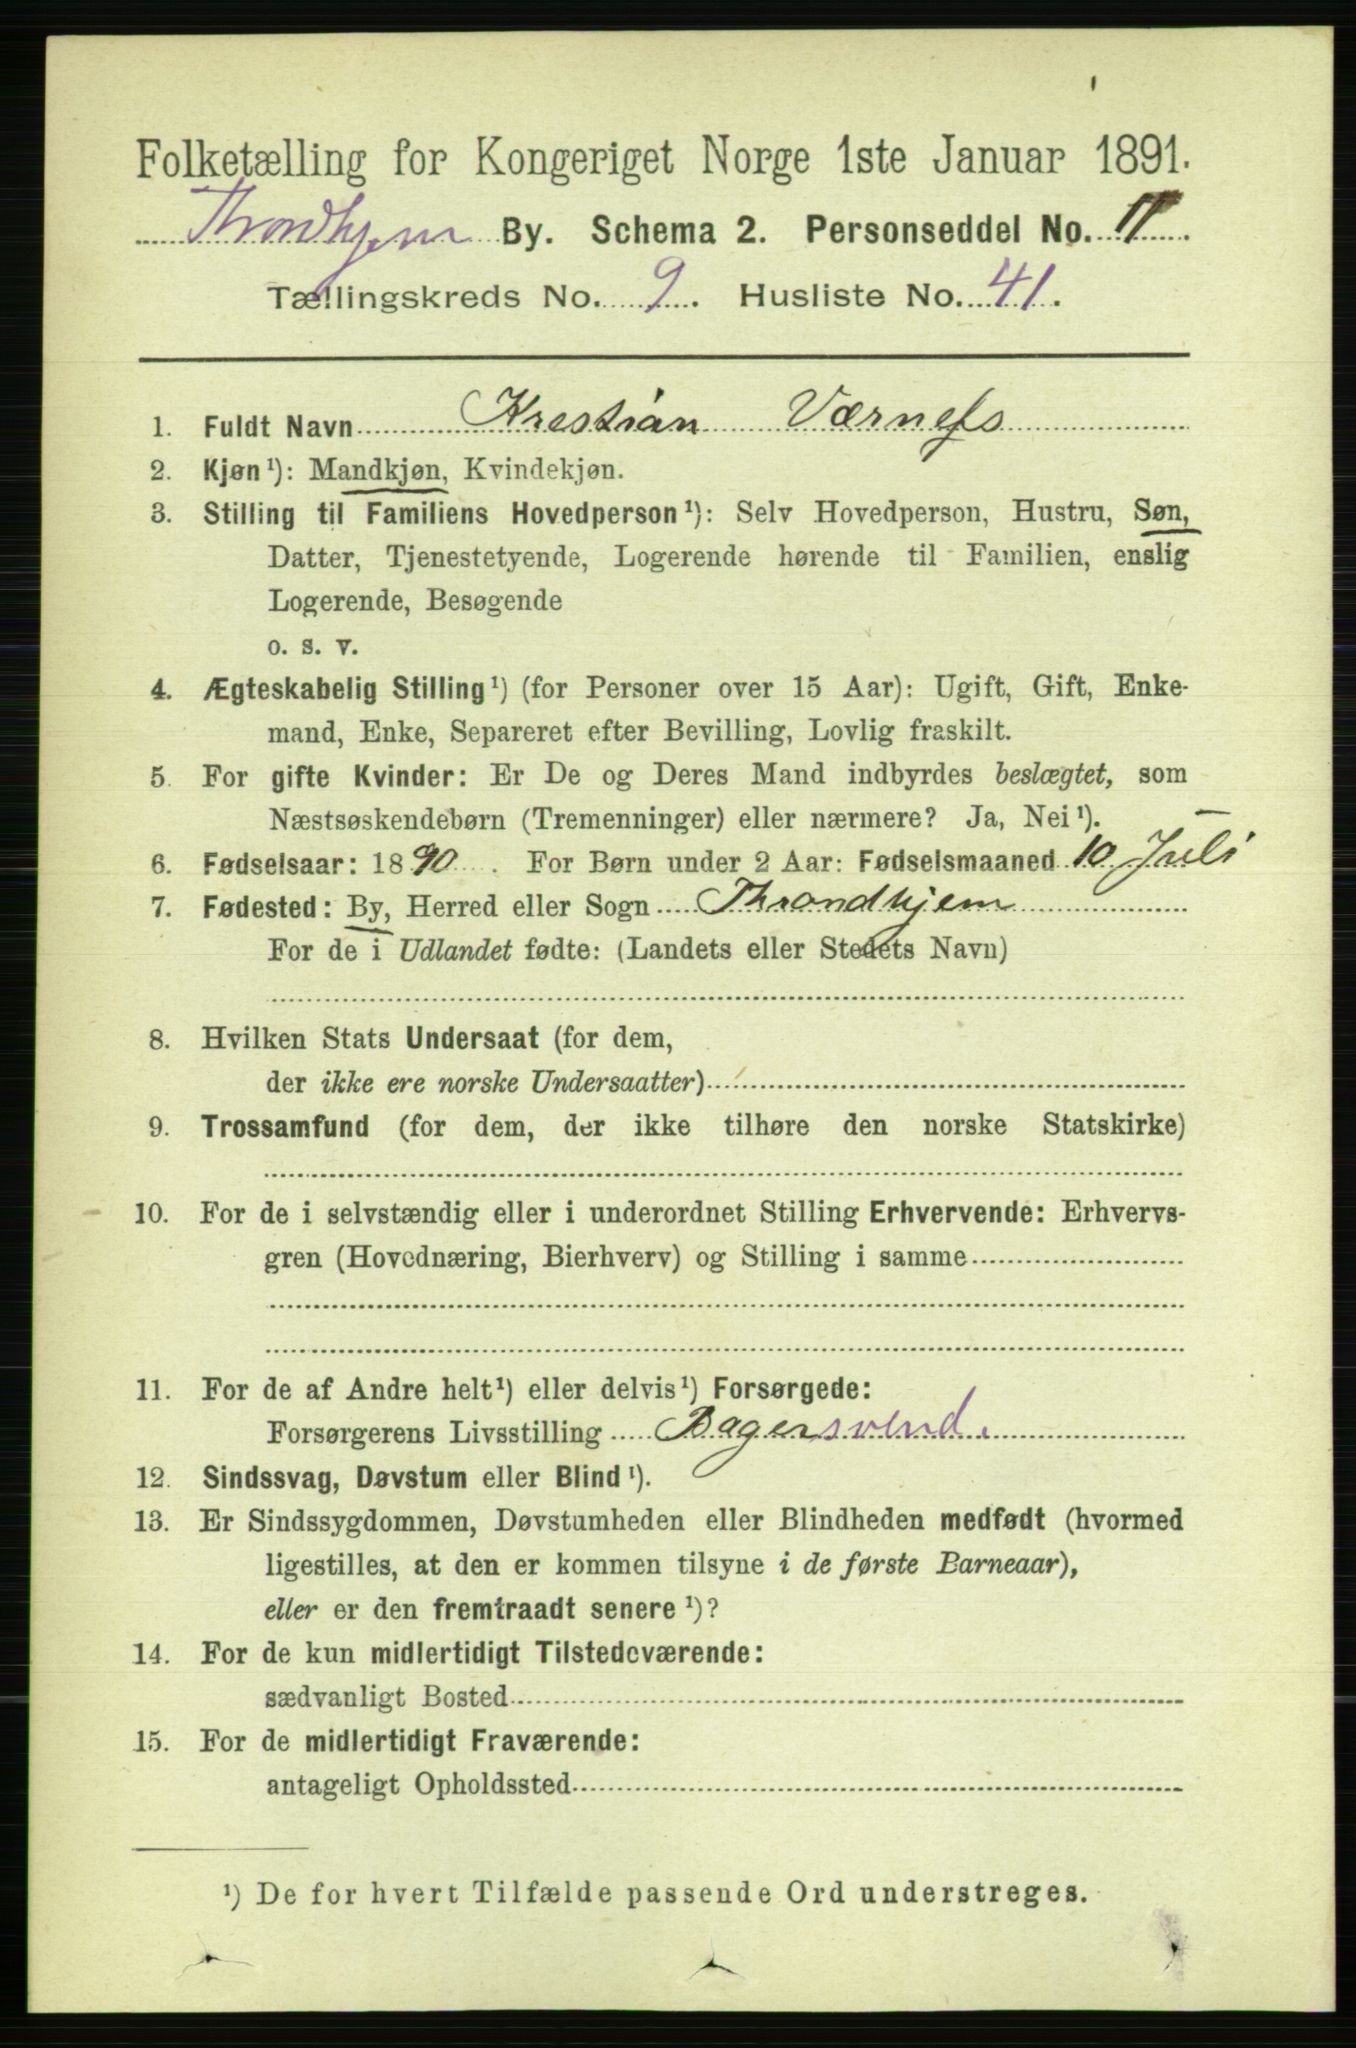 Folketælling for Kongeriget Norge 1ste Januar 1891.
Throndhjem By. Schema 2. Personseddel No. 11.
Tællingskreds No. 9. Husliste No. 41.
1. Fuldt Navn Krestian Værness
2. Kjøn¹): Mandkjøn, Kvindekjøn.
3. Stilling til Familiens Hovedperson¹): Selv Hovedperson, Hustru, Søn,
Datter, Tjenestetyende, Logerende hørende til Familien, enslig
Logerende, Besøgende
o. s. v.
4. Ægteskabelig Stilling¹) (for Personer over 15 Aar): Ugift, Gift, Enke-
mand, Enke, Separeret efter Bevilling, Lovlig fraskilt.
5. For gifte Kvinder: Er De og Deres Mand indbyrdes beslægtet, som
Næstsøskendebørn (Tremenninger) eller nærmere? Ja, Nei¹).
6. Fødselsaar: 1890. For Børn under 2 Aar: Fødselsmaaned 10 Juli
7. Fødested: By, Herred eller Sogn Throndhjem
For de i Udlandet fødte: (Landets eller Stedets Navn)
8. Hvilken Stats Undersaat (for dem,
der ikke ere norske Undersaatter)
9. Trossamfund (for dem, der ikke tilhøre den norske Statskirke)
10. For de i selvstændig eller i underordnet Stilling Erhvervende: Erhvervs-
gren (Hovednæring, Bierhverv) og Stilling i samme
11. For de af Andre helt¹) eller delvis¹) Forsørgede:
Forsørgerens Livsstilling Bagersvend.
12. Sindssvag, Døvstum eller Blind¹).
13. Er Sindssygdommen, Døvstumheden eller Blindheden medfødt (hvormed
ligestilles, at den er kommen tilsyne i de første Barneaar),
eller er den fremtraadt senere¹)?
14. For de kun midlertidigt Tilstedeværende:
sædvanligt Bosted
15. For de midlertidigt Fraværende:
antageligt Opholdssted
¹) De for hvert Tilfælde passende Ord understreges.